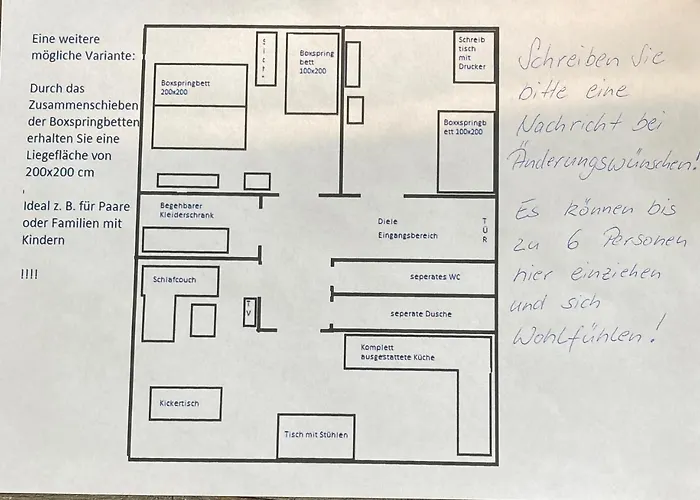 Eine weitere
mögliche Variante:
Durch das
Zusammenschieben
der Boxspringbetten
erhalten Sie eine
Liegefläche von
200x200 cm
Ideal z. B. für Paare
oder Familien mit
Kindern
!!!!
Boxspringbett
200x200
Boxspring
bett
100x200
Schreib
tisch
mit
Drucker
Boxspringb
ett 100x200
Begehbarer
Kleiderschrank
Diele
Eingangsbereich
T
Ü
R
Schlafcouch
T
V
seperates WC
seperate Dusche
Komplett
ausgestattete Küche
Kickertisch
Tisch mit Stühlen
Schreiben Sie
bitte eine
Nachricht bei
Änderungswünschen!
Es können bis
zu 6 Personen
hier einziehen
und sich
Wohlfühlen!